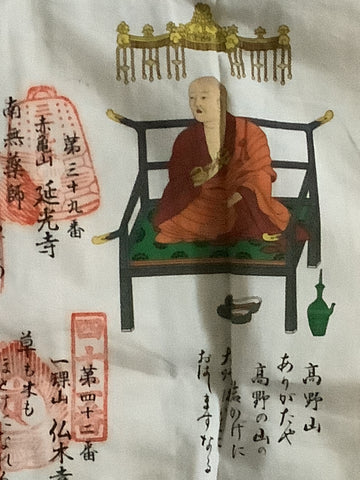 第三十九番
赤亀山 延光寺
南無薬師
高野山
ありがたや
高野の山の
岩かげに
おはしますなる
第四十二番
一𤦲山 仏木寺
草も木も
ほとけになれる